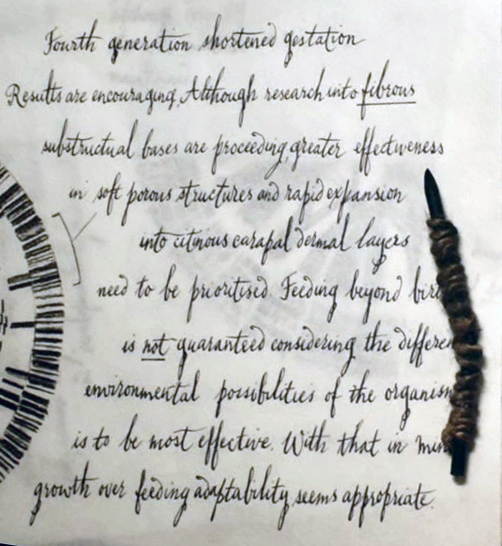 Fourth generation shortened gestation
Results are encouraging. Although research into fibrous
substructual bases are proceeding, greater effectiveness
in soft porous structures and rapid expansion
into citinous carapal dermal layers
need to be prioritised. Feeding beyond
is not guaranteed considering the
environmental possibilities of the
is to be most effective. With that in
growth over feeding adaptability seems appropriate.